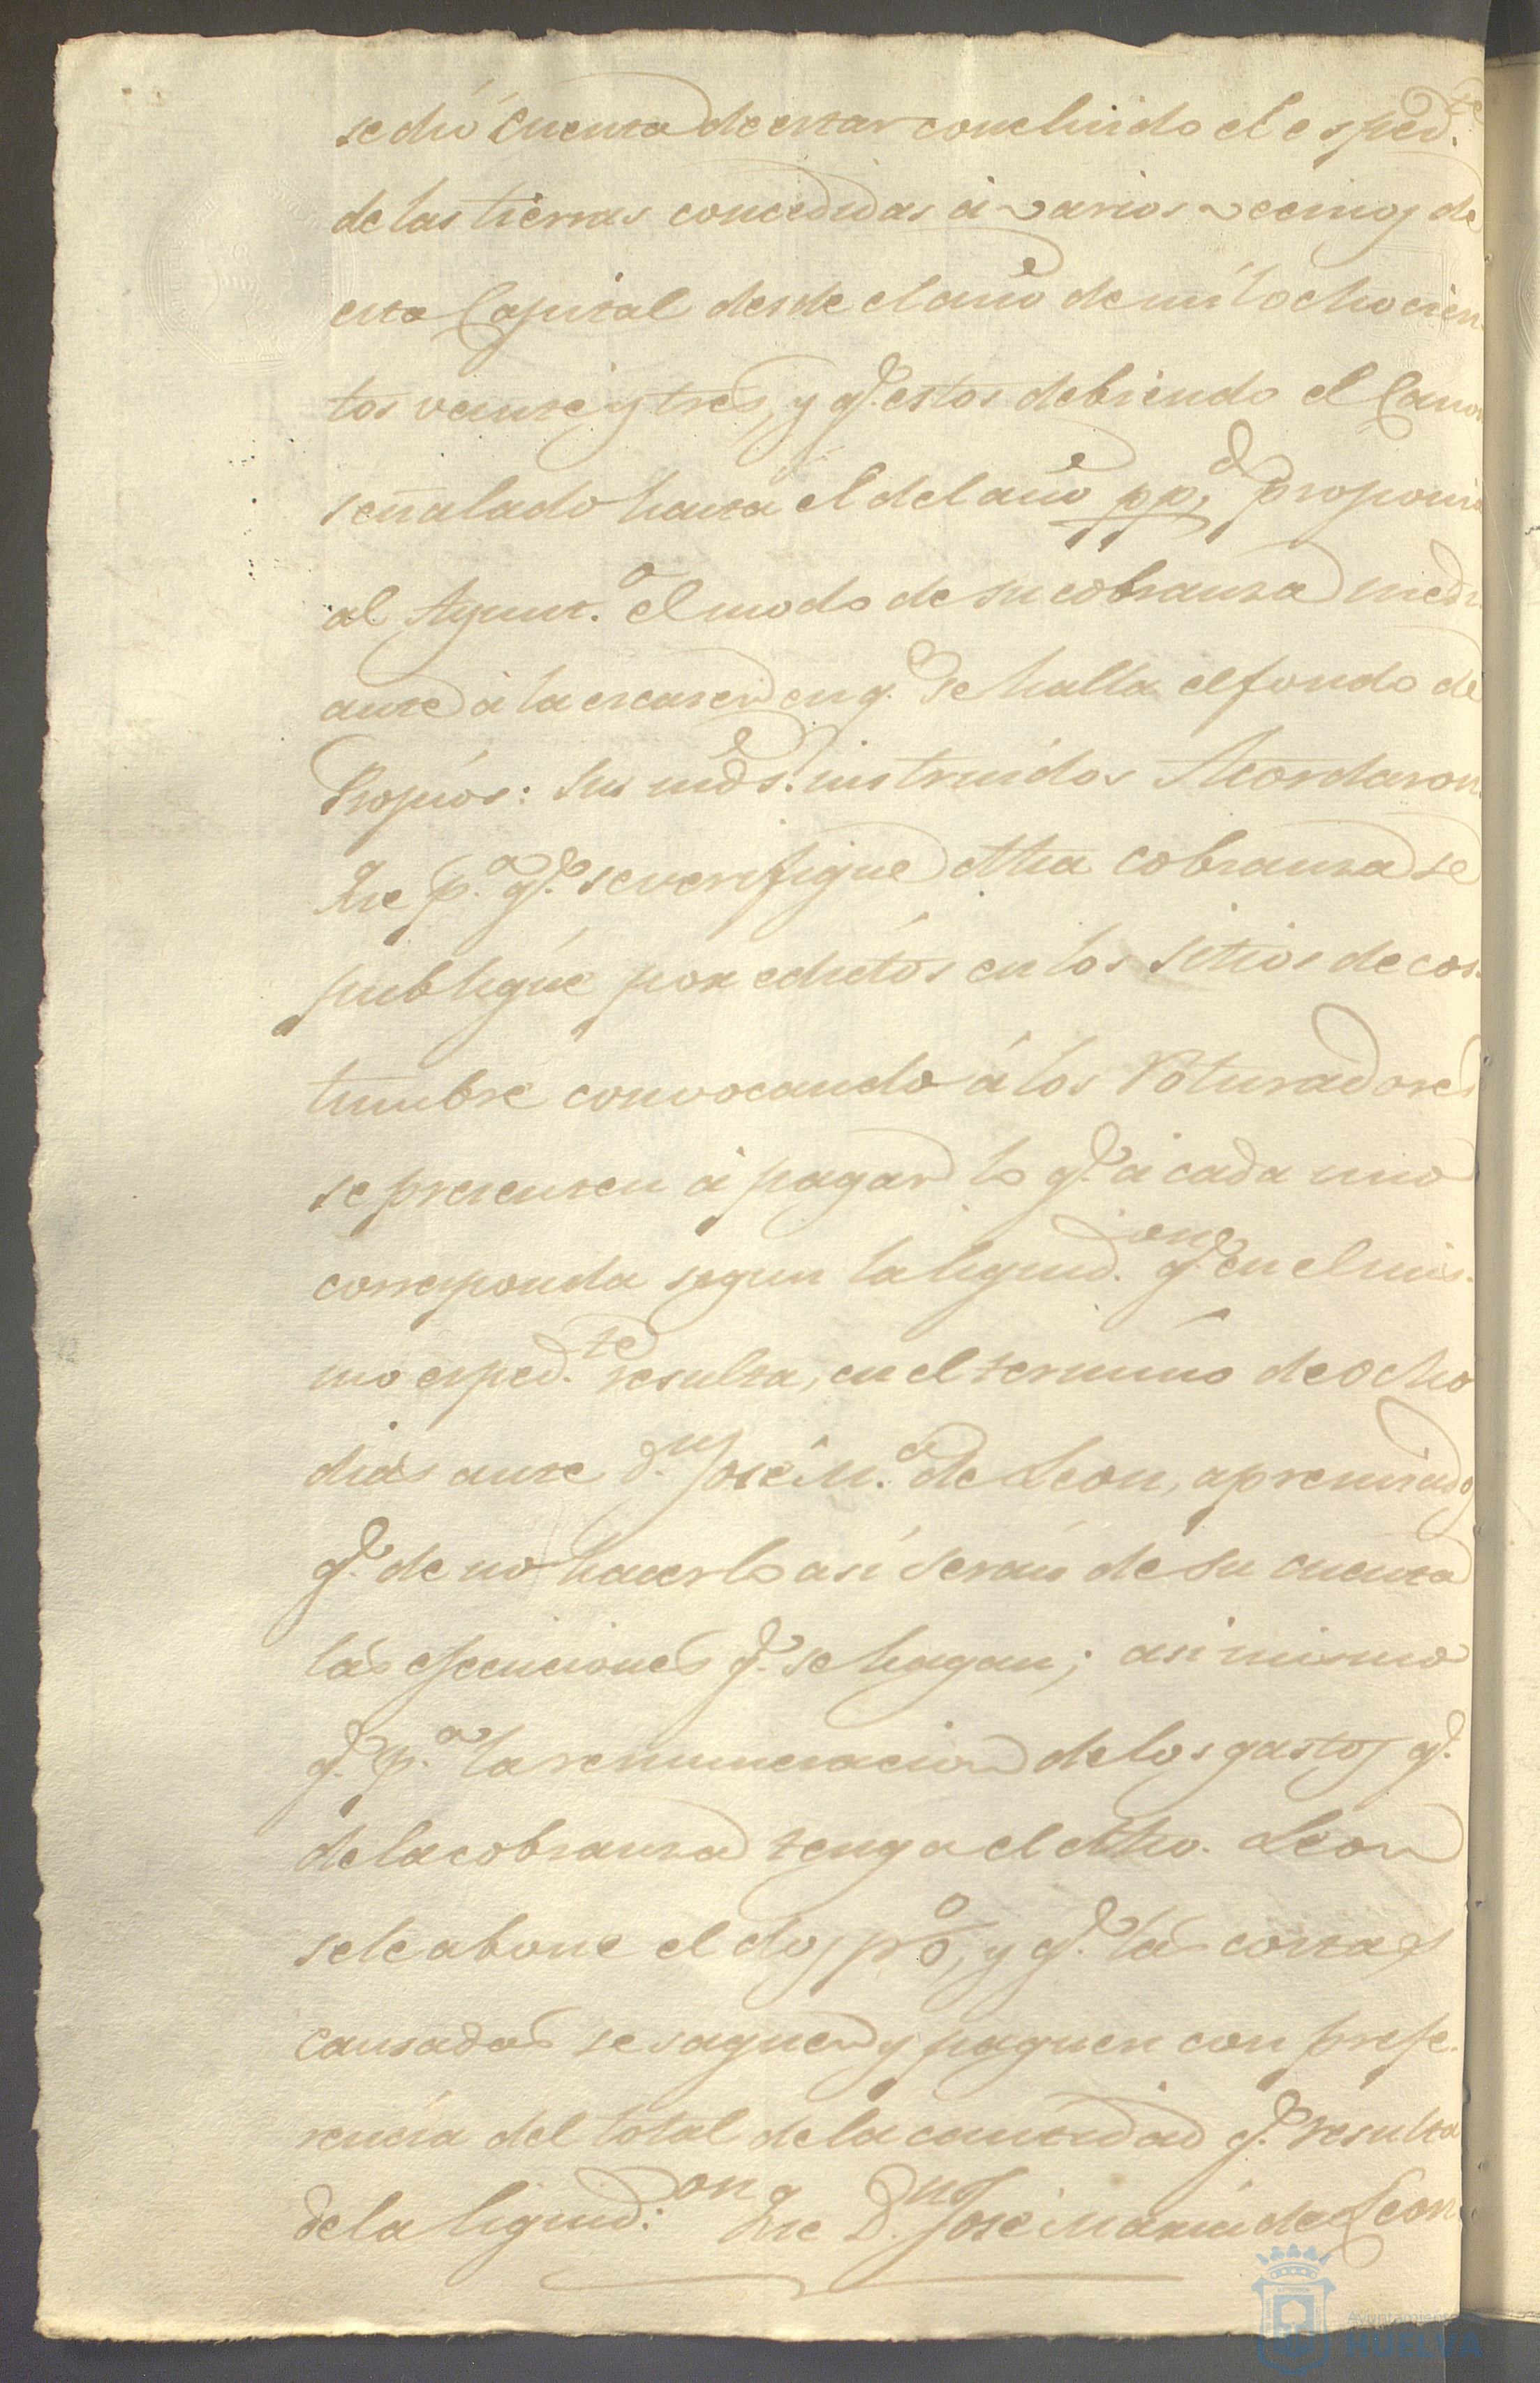 se dió cuenta de estar concluido el esped.te
de las tierras concedidas á varios vecinos de
esta Capital desde el año de mil ochocien-
tos veinte y tres, y q.e estos debiendo el Canon
señalado hasta el del año pp.do proponia
al Ayunt.o el modo de su cobranza medi-
ante á la escasez en q.e se halla el fondo de
Propios: Sus mds. instruidos Acordaron:
Que p.a q.e se verifique dha cobranza se
publique por edictos en los sitios de cos-
tumbre convocando á los Roturadores
se presenten á pagar lo q.e á cada uno
corresponda segun la liquid.on q.e en el mis-
mo esped.te resulta, en el termino de ocho
dias ante d.n José M.a de Leon, apremiados
q.e de no hacerlo asi seran de su cuenta
las ejecuciones q.e se hagan; asi mismo
q.e p.a la remuneracion de los gastos q.e
de la cobranza tenga el dho. Leon
se le abone el dos p%, y q.e las costas
causadas se saquen y paguen con prefe-
rencia del total de la cantidad q.e resulta
de la liquid.on: Que D.n José Maria de Leon
Ayuntamiento
HUELVA